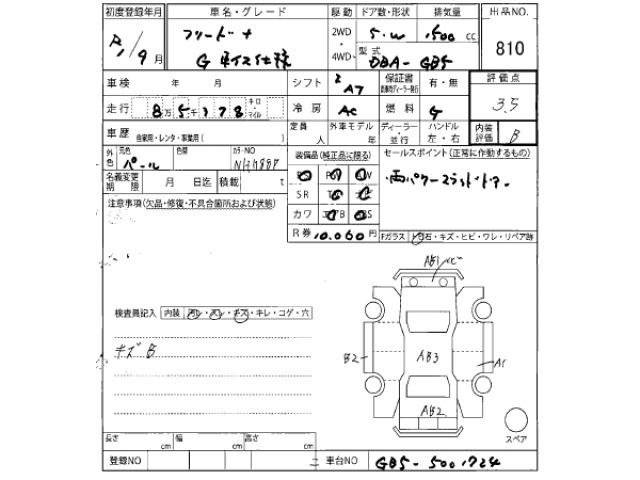 初度登録年月 車名・グレード 駆動 ドア数・形状 排気量 出品NO.
R1/9月 フリード+ 2WD・4WD 5.W 1500 cc 810
G 車イス仕様 型式 DBA-GB5
車検 年 月 シフト AT 保証書 有・無 評価点
走行 8万5178 キロ・マイル 冷房 AC 燃料 G 3.5
車歴 自家用・レンタ・事業用( ) 定員 人 外車モデル 年 ディーラー・並行 ハンドル 左・右 内装評価 B
外色 元色 パール 色替 カラーNO NH788P 装備品(純正品に限る) セールスポイント(正常に作動するもの)
名義変更期限 月 日迄 積載 t SR 両パワースライドドアー
注意事項(欠品・修復・不具合箇所および状態) カワ
R券 10.060円 Fガラス 飛石・キズ・ヒビ・ワレ・リペア跡
AB1
検査員記入 内装 キズ・キレ・コゲ・穴
キズB
B2 AB3 A1
AB2
スペア
長さ cm 幅 cm 高さ cm
登録NO 車台NO GB5-5001724